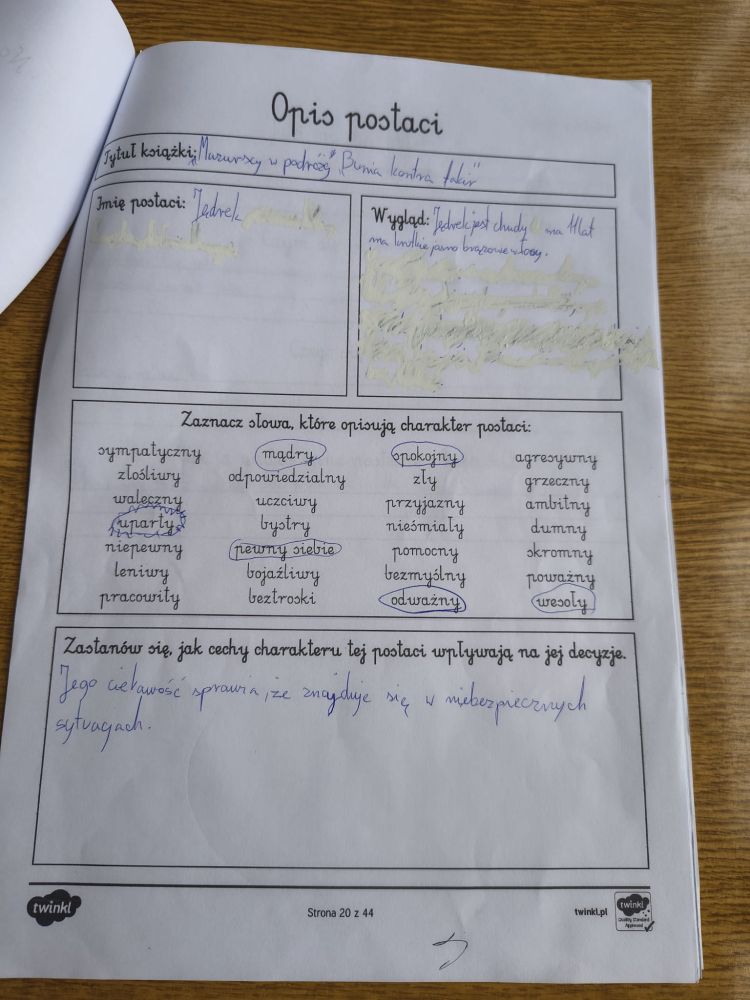 Opis postaci
Tytuł książki: „Mazurscy w podróży" „Bunia kontra fakir"
Imię postaci: Jędrek
Wygląd: Jędrek jest chudy ma 11 lat
ma krótkie jasno brązowe włosy.
Zaznacz słowa, które opisują charakter postaci:
sympatyczny mądry spokojny agresywny
złośliwy odpowiedzialny zły grzeczny
waleczny uczciwy przyjazny ambitny
uparty bystry nieśmiały dumny
niepewny pewny siebie pomocny skromny
leniwy bojaźliwy bezmyślny poważny
pracowity beztroski odważny wesoły
Zastanów się, jak cechy charakteru tej postaci wpływają na jej decyzje.
Jego ciekawość sprawia, że znajduje się w niebezpiecznych
sytuacjach.
twinkl
Strona 20 z 44
twinkl.pl
twinkl
Quality Standard
Approved